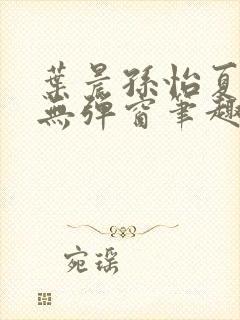 葉晨孫怡夏
無彈窗筆趣
宛瑤